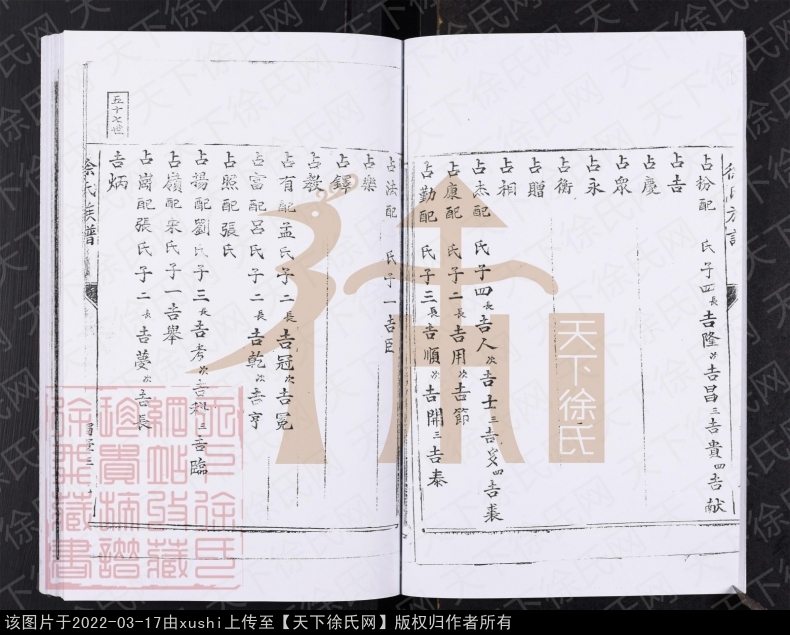 占粉配 氏子四長吉隆次吉昌三吉貴四吉献
占吉
占慶
占眾
占永
占衡
占贈
占相
占杰配 氏子四長吉人次吉士三吉安四吉裘
占康配 氏子二長吉用次吉節
占勤配 氏子三長吉順次吉開三吉泰
占法配 氏子一吉臣
占樂
占鐸
占毅
占有配孟氏子二長吉冠次吉冕
占富配呂氏子二長吉乾次吉亨
占熙配張氏
占揚配劉氏子三長吉考次吉科三吉臨
占嶺配宋氏子一吉舉
占崗配張氏子二長吉夢次吉長
五十七世
吉炳
徐氏族譜
天下徐氏
天下徐氏网
该图片于2022-03-17由xushi上传至【天下徐氏网】版权归作者所有